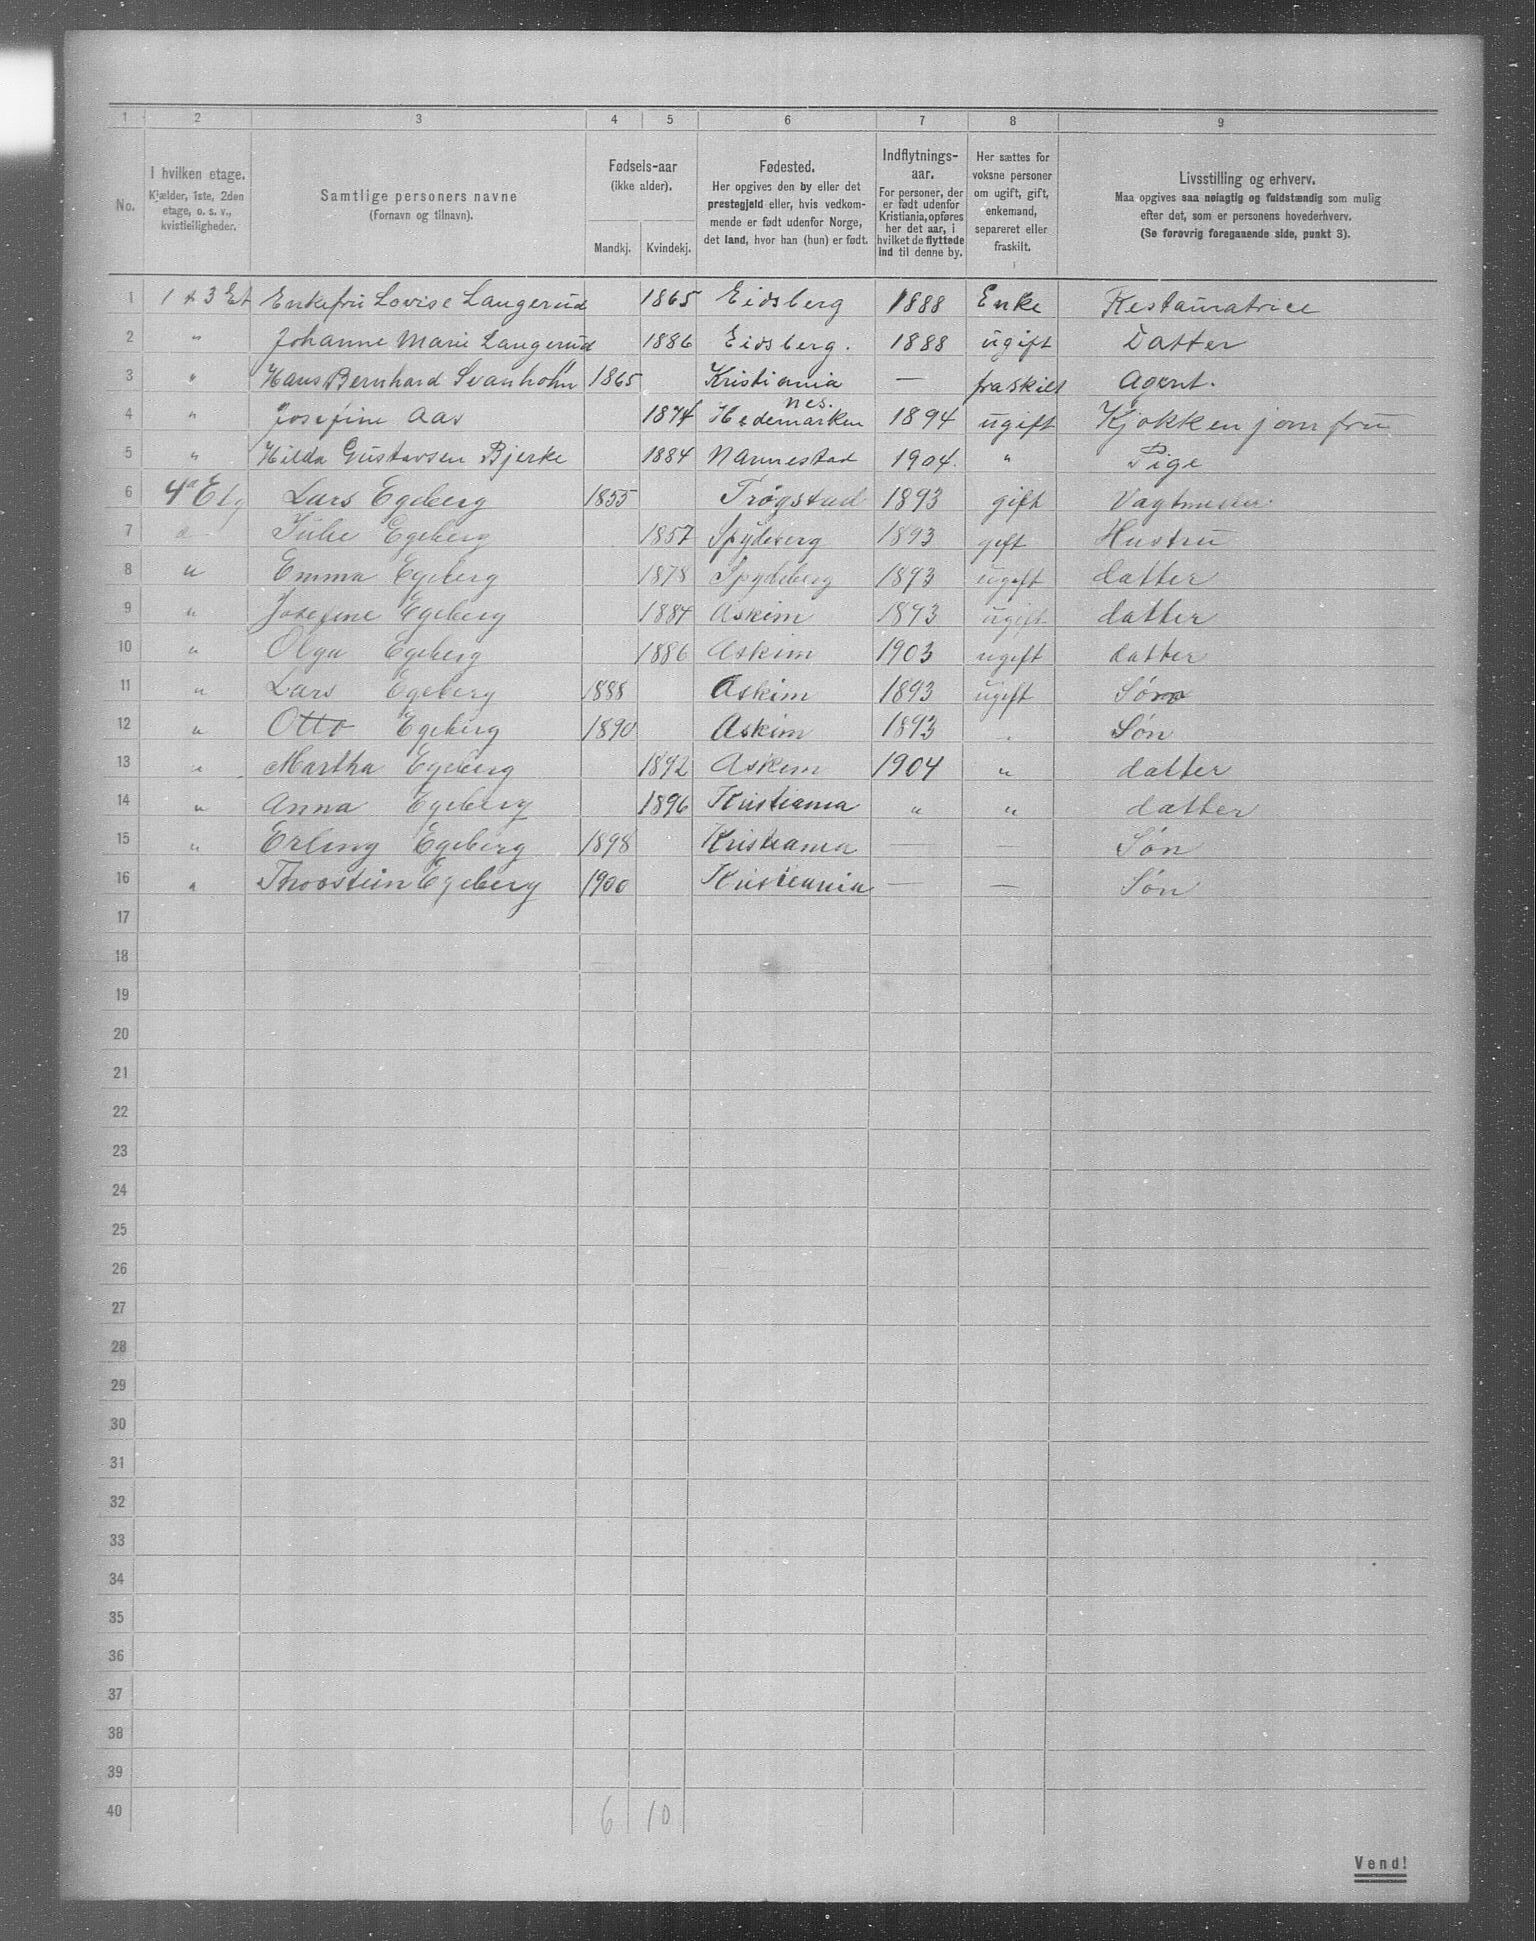 1 2 3 4 5 6 7 8 9
No.
I hvilken etage.
Kjælder, 1ste, 2den
etage, o. s. v.,
kvistleiligheder.
Samtlige personers navne
(Fornavn og tilnavn).
Fødsels-aar
(ikke alder).
Mandkj. Kvindekj.
Fødested.
Her opgives den by eller det
prestegjeld eller, hvis vedkom-
mende er født udenfor Norge,
det land, hvor han (hun) er født.
Indflytnings-
aar.
For personer, der
er født udenfor
Kristiania, opføres
her det aar, i
hvilket de flyttede
ind til denne by.
Her sættes for
voksne personer
om ugift, gift,
enkemand,
separeret eller
fraskilt.
Livsstilling og erhverv.
Maa opgives saa nøiagtig og fuldstændig som mulig
efter det, som er personens hovederhverv.
(Se forøvrig foregaaende side, punkt 3).
1 1 & 3 Et Enkefru Lovise Langerud 1865 Eidsberg 1888 Enke Restauratrice
2 " Johanne Marie Langerud 1886 Eidsberg. 1888 ugift Datter
3 " Hans Bernhard Svanholm 1865 Kristiania — fraskilt Agent.
4 " Josefine Aas 1874 Nes. Hedemarken 1894 ugift Kjøkkenjomfru
5 " Hilda Gustavsen Bjerke 1884 Nannestad 1904. " Pige
6 4de Etg Lars Egeberg 1855 Trøgstad 1893 gift Vagtmester
7 " Julie Egeberg 1857 Spydeberg 1893 gift Hustru
8 " Emma Egeberg 1878 Spydeberg 1893 ugift datter
9 " Josefine Egeberg 1884 Askim 1893 ugift datter
10 " Olga Egeberg 1886 Askim 1903 ugift datter
11 " Lars Egeberg 1888 Askim 1893 ugift Søn
12 " Otto Egeberg 1890 Askim 1893 " Søn
13 " Martha Egeberg 1892 Askim 1904 " datter
14 " Anna Egeberg 1896 Kristiania " " datter
15 " Erling Egeberg 1898 Kristiania — — Søn
16 " Thorstein Egeberg 1900 Kristiania — — Søn
17
18
19
20
21
22
23
24
25
26
27
28
29
30
31
32
33
34
35
36
37
38
39
40 6 10
Vend!